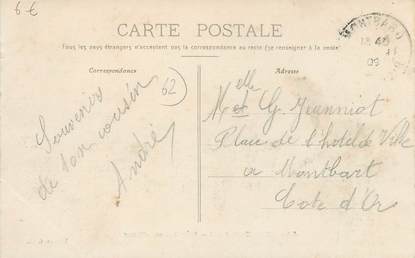 6 €
CARTE POSTALE
Tous les pays étrangers n'acceptent pas la correspondance au recto (se renseigner à la poste)
Correspondance
Adresse
MONTBARD
09
62
Souvenir
de ton cousin
André
Melle G. Jeanniot
Place de l'hotel de Ville
a Montbart
Cote d'Or